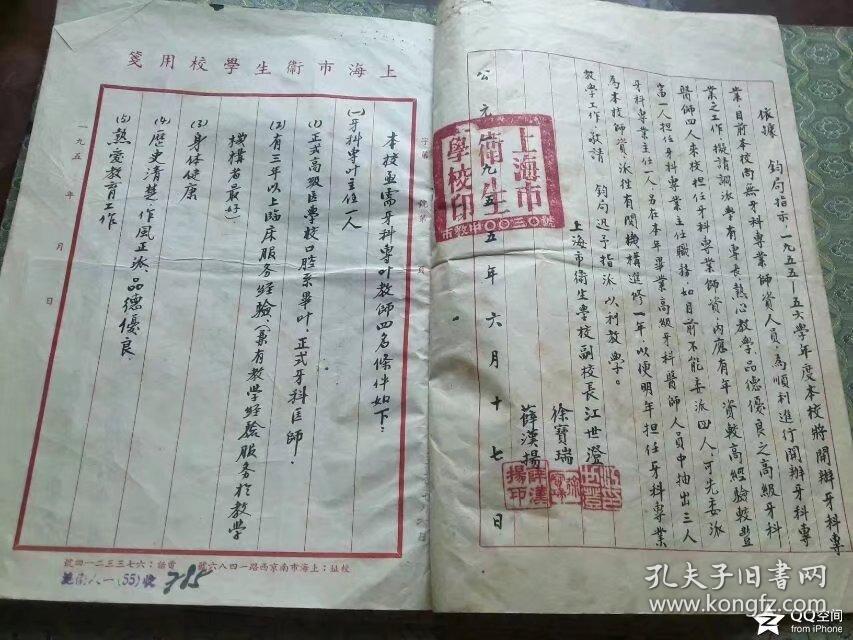 依據 鈞局指示一九五五—五六學年度本校將開辦牙科專
業目前本校尚無牙科專業師資人員為順利進行開辦牙科專
業之工作擬請調派學有專長熱心教學品德優良之高級牙科
醫師四人來校担任牙科專業師資內應有年資較高經驗較豐
富一人担任牙科專業主任職務如目前不能委派四人可先委派
牙科專業主任一人另在本年畢業高級牙科醫師人員中抽出三人
為本校師資派往有關機構進修一年以便明年担任牙科專業
教學工作敬請 鈞局迅予指派以利教學。
上海市衛生學校副校長江世澄
徐寶瑞
薛漢揚
公元一九五五年六月十七日
上海市
衛生
學校印
薛漢
揚印
上海市衛生學校用箋
本校亟需牙科專叶教師四名條件如下：
(一)牙科專叶主任一人
(1)正式高級医學校口腔系畢叶，正式牙科医師．
(2)有三年以上臨床服务經驗、(兼有教学經驗服务於教学
機構者最好)
(3)身体健康
(4)歷史清楚、作風正派、品德優良．
(5)熱愛教育工作
一九五 年 月 日
校址：上海市南京西路一四八六號 電話：六七三三二一四號
(55)收 785
孔夫子旧书网
www.kongfz.com
QQ空间
from iPhone